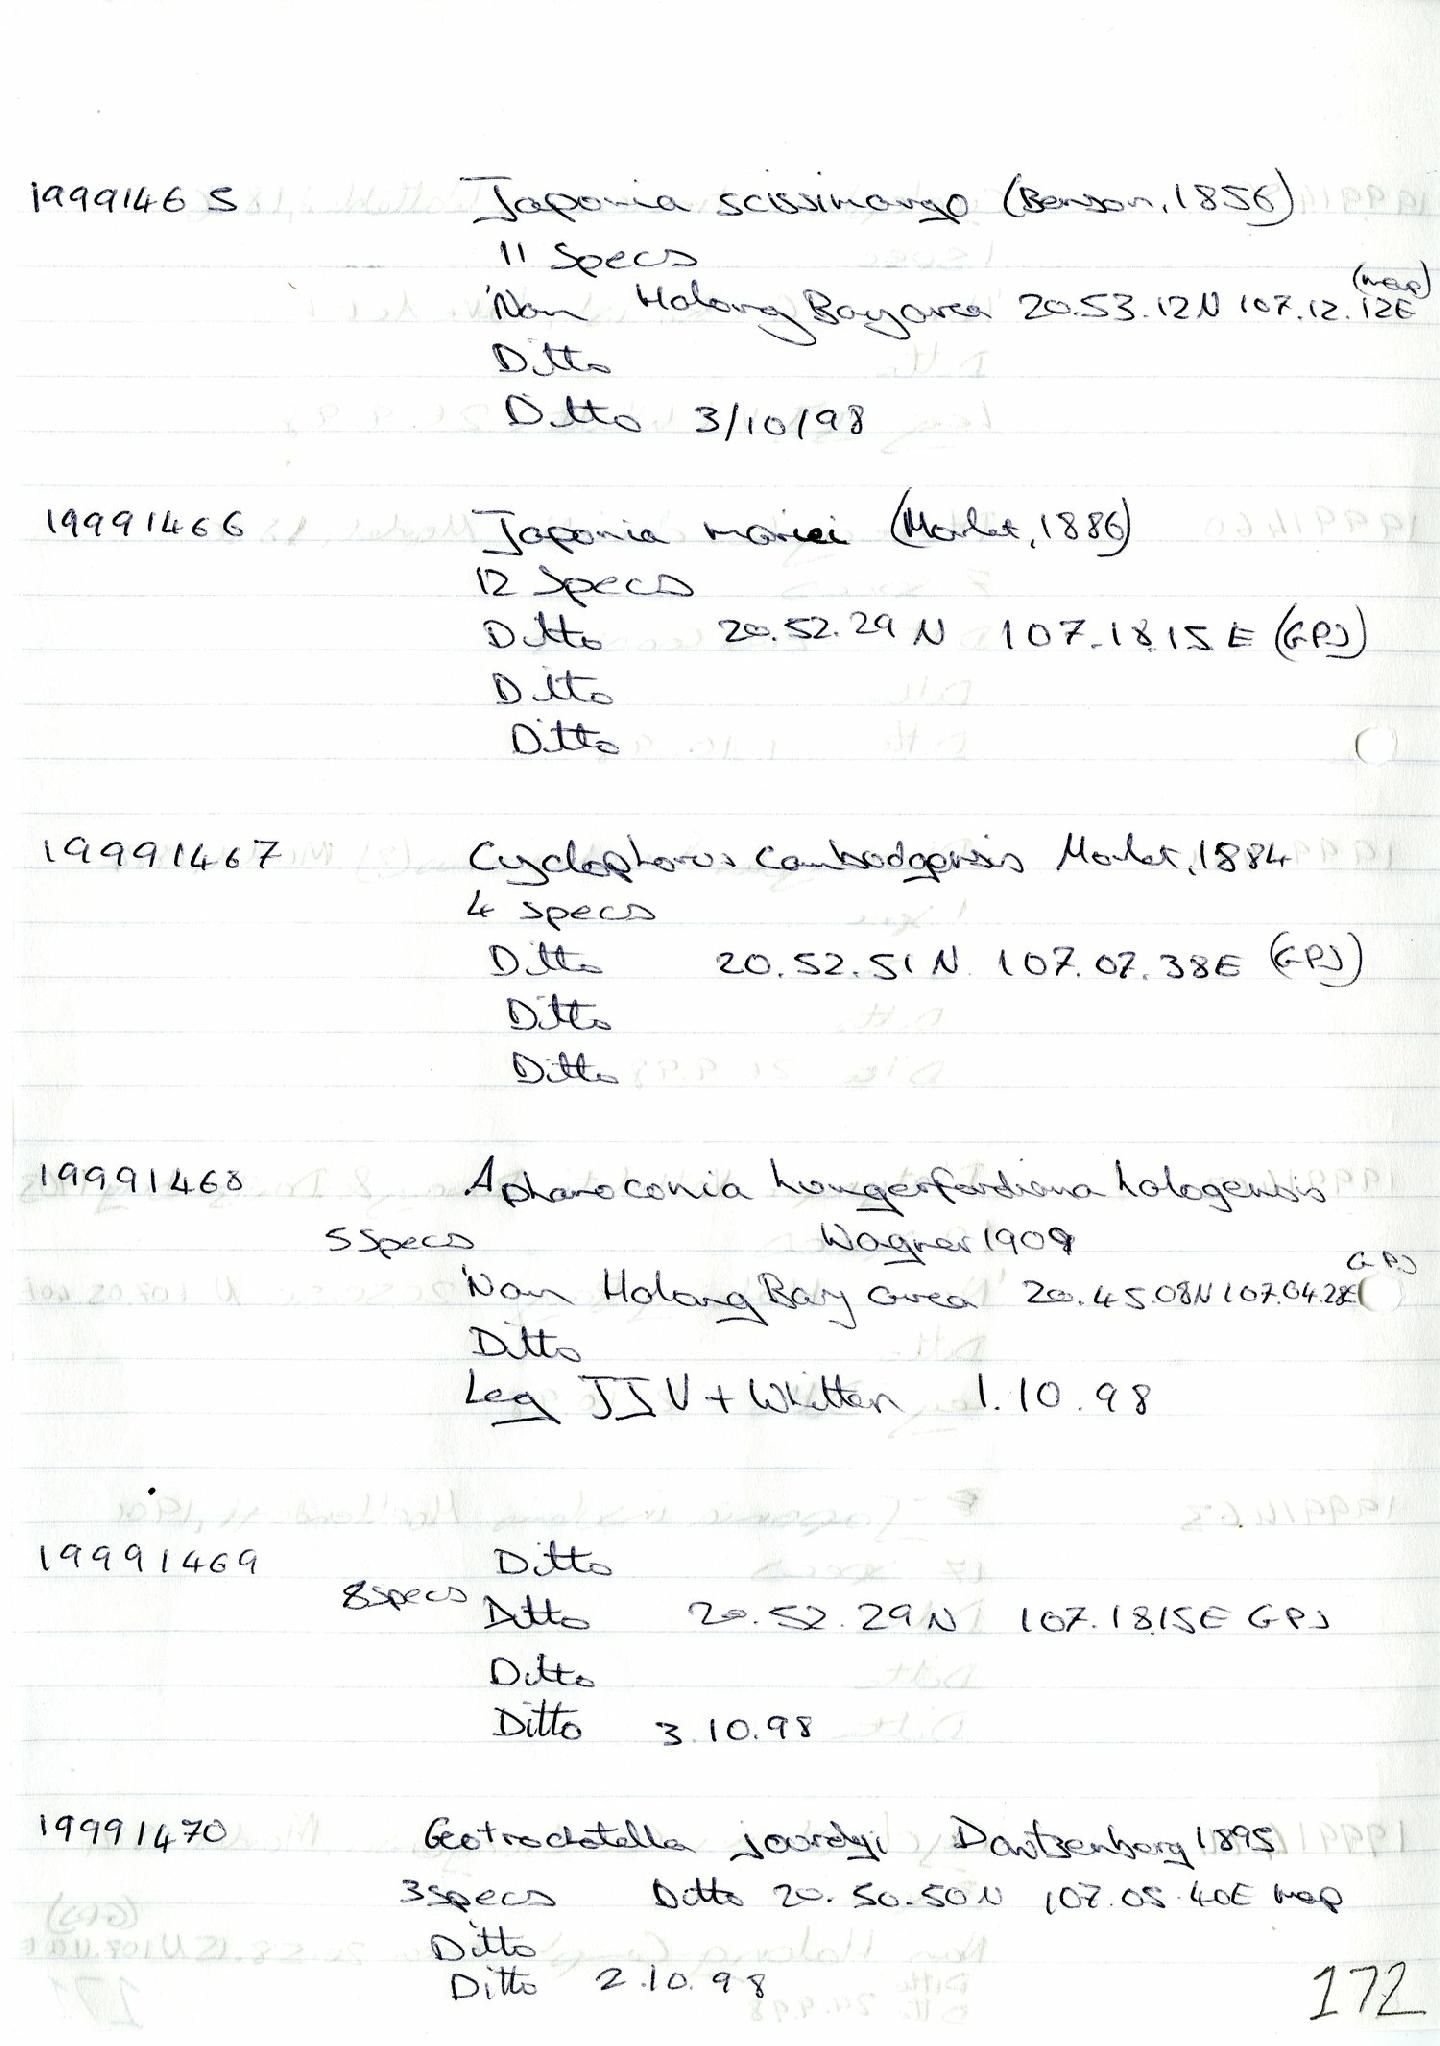 19991465 Japonia scissimargo (Benson, 1856)
11 Specs
'Nam Halong Bay area 20.53.12N 107.12.12E (map)
Ditto
Ditto 3/10/98
19991466 Japonia mariei (Morlet, 1886)
12 Specs
Ditto 20.52.29N 107.18.15E (GPS)
Ditto
Ditto
19991467 Cyclophorus cambodgensis Morlet, 1884
4 specs
Ditto 20.52.51N 107.07.38E (GPS)
Ditto
Ditto
19991468 Aphanoconia hungerfordiana halogensis
5 Specs Wagner 1909
'Nam Halong Bay area 20.45.08N 107.04.28E GPS
Ditto
Leg JJV + Whitten 1.10.98
19991469 Ditto
8 specs Ditto 20.52.29N 107.18.15E GPS
Ditto
Ditto 3.10.98
19991470 Geotrochatella jourdyi Dautzenberg 1895
3 specs Ditto 20.50.50N 107.05.40E map
Ditto
Ditto 2.10.98
172